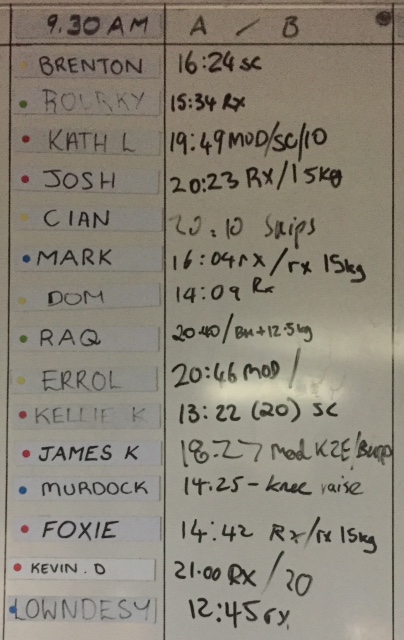 9.30 AM A / B
BRENTON 16:24 SC
ROURKY 15:34 Rx
KATH L 19:49 MOD/SC/10
JOSH 20:23 RX/15kg
CIAN 20:10
MARK 16:04 rx/rx 15kg
DOM 14:09 Rx
RAQ 20.40/ +12.5kg
ERROL 20:46 MOD/
KELLIE K 13:22 (20) SC
JAMES K 18:27 Mod K2E/Burp
MURDOCK 14:25 - knee raise
FOXIE 14:42 Rx/rx 15kg
KEVIN.D 21.00 RX/20
LOWNDESY 12:45 rx